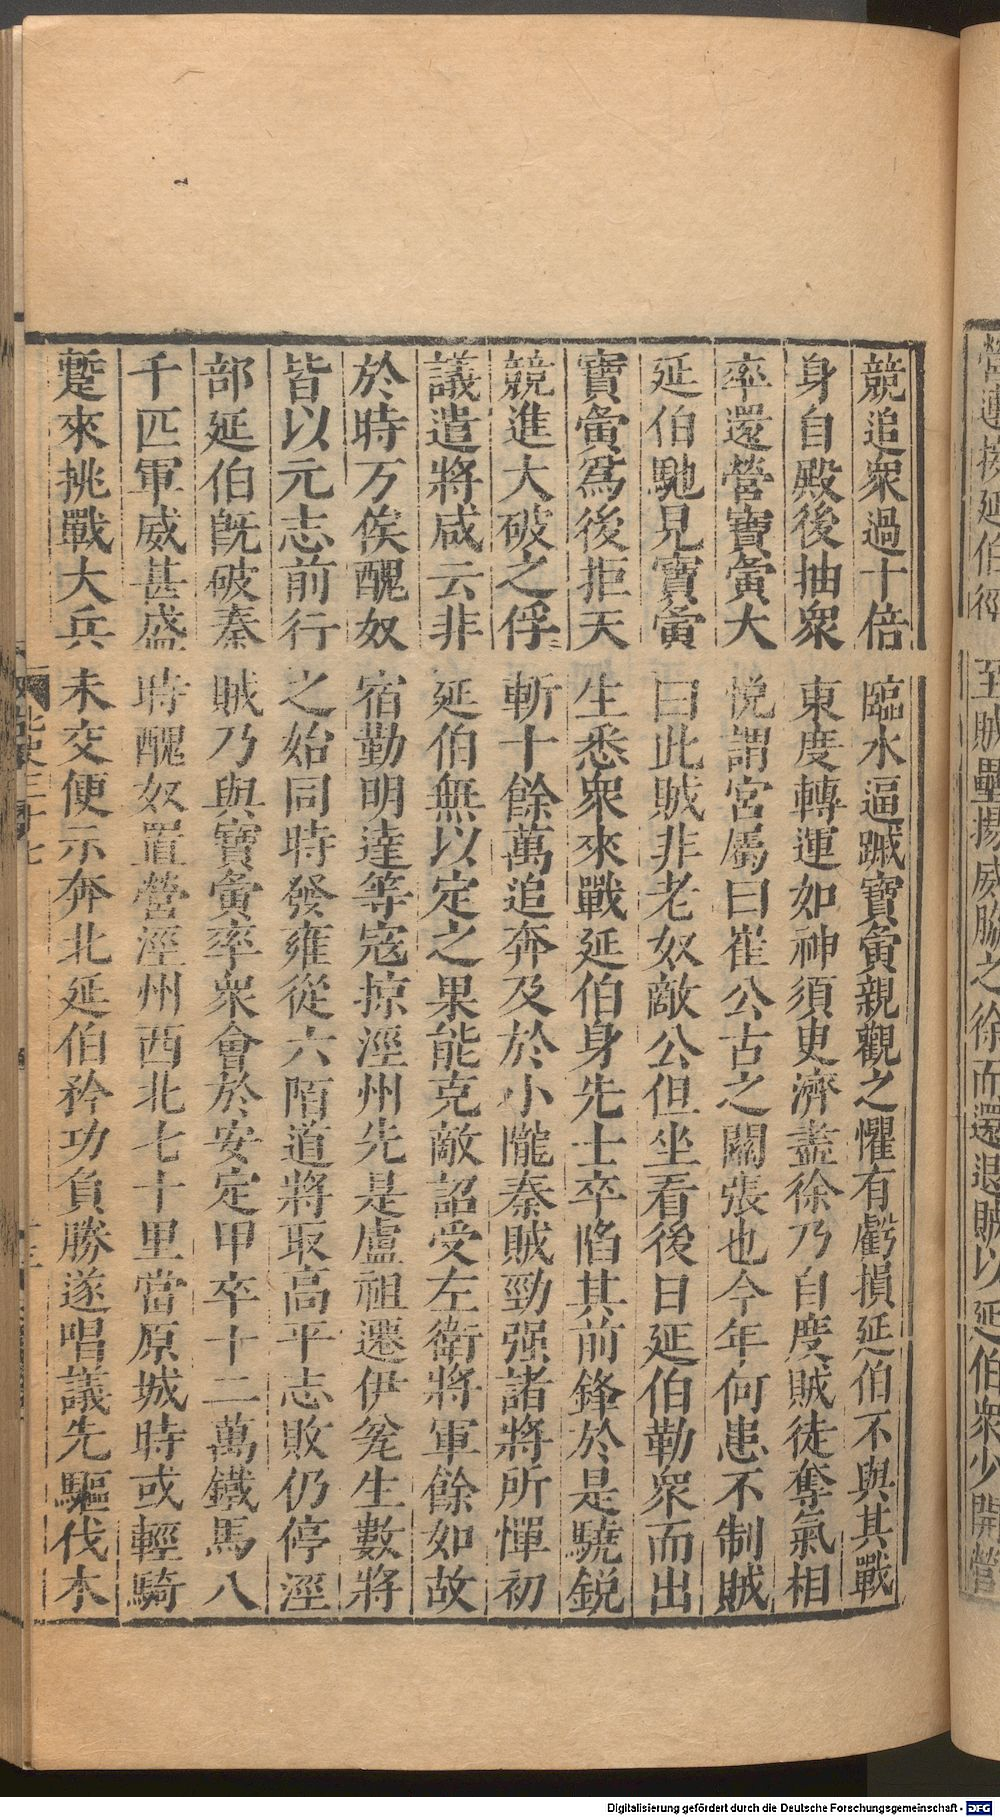 競追衆過十倍臨水逼蹴寶夤親觀之懼有虧損延伯不與其戰
身自殿後抽衆東度轉運如神須臾濟盡徐乃自度賊徒奪氣相
率還營寶夤大悅謂官屬曰崔公古之關張也今年何患不制賊
延伯馳見寶夤曰此賊非老奴敵公但坐看後日延伯勒衆而出
寶夤爲後拒天生悉衆來戰延伯身先士卒陷其前鋒於是驍銳
競進大破之俘斬十餘萬追奔及於小隴秦賊勁强諸將所憚初
議遣將咸云非延伯無以定之果能克敵詔受左衛將軍餘如故
於時万俟醜奴宿勤明達等寇掠涇州先是盧祖遷伊瓫生數將
皆以元志前行之始同時發雍從六陌道將取高平志敗仍停涇
部延伯旣破秦賊乃與寶夤率衆會於安定甲卒十二萬鐵馬八
千匹軍威甚盛時醜奴置營涇州西北七十里當原城時或輕騎
蹔來挑戰大兵未交便示奔北延伯矜功負勝遂唱議先驅伐木
北史三十七
延伯徑至賊壘揚威脅之徐而還退賊以延伯衆少開營
Digitalisierung gefördert durch die Deutsche Forschungsgemeinschaft - DFG